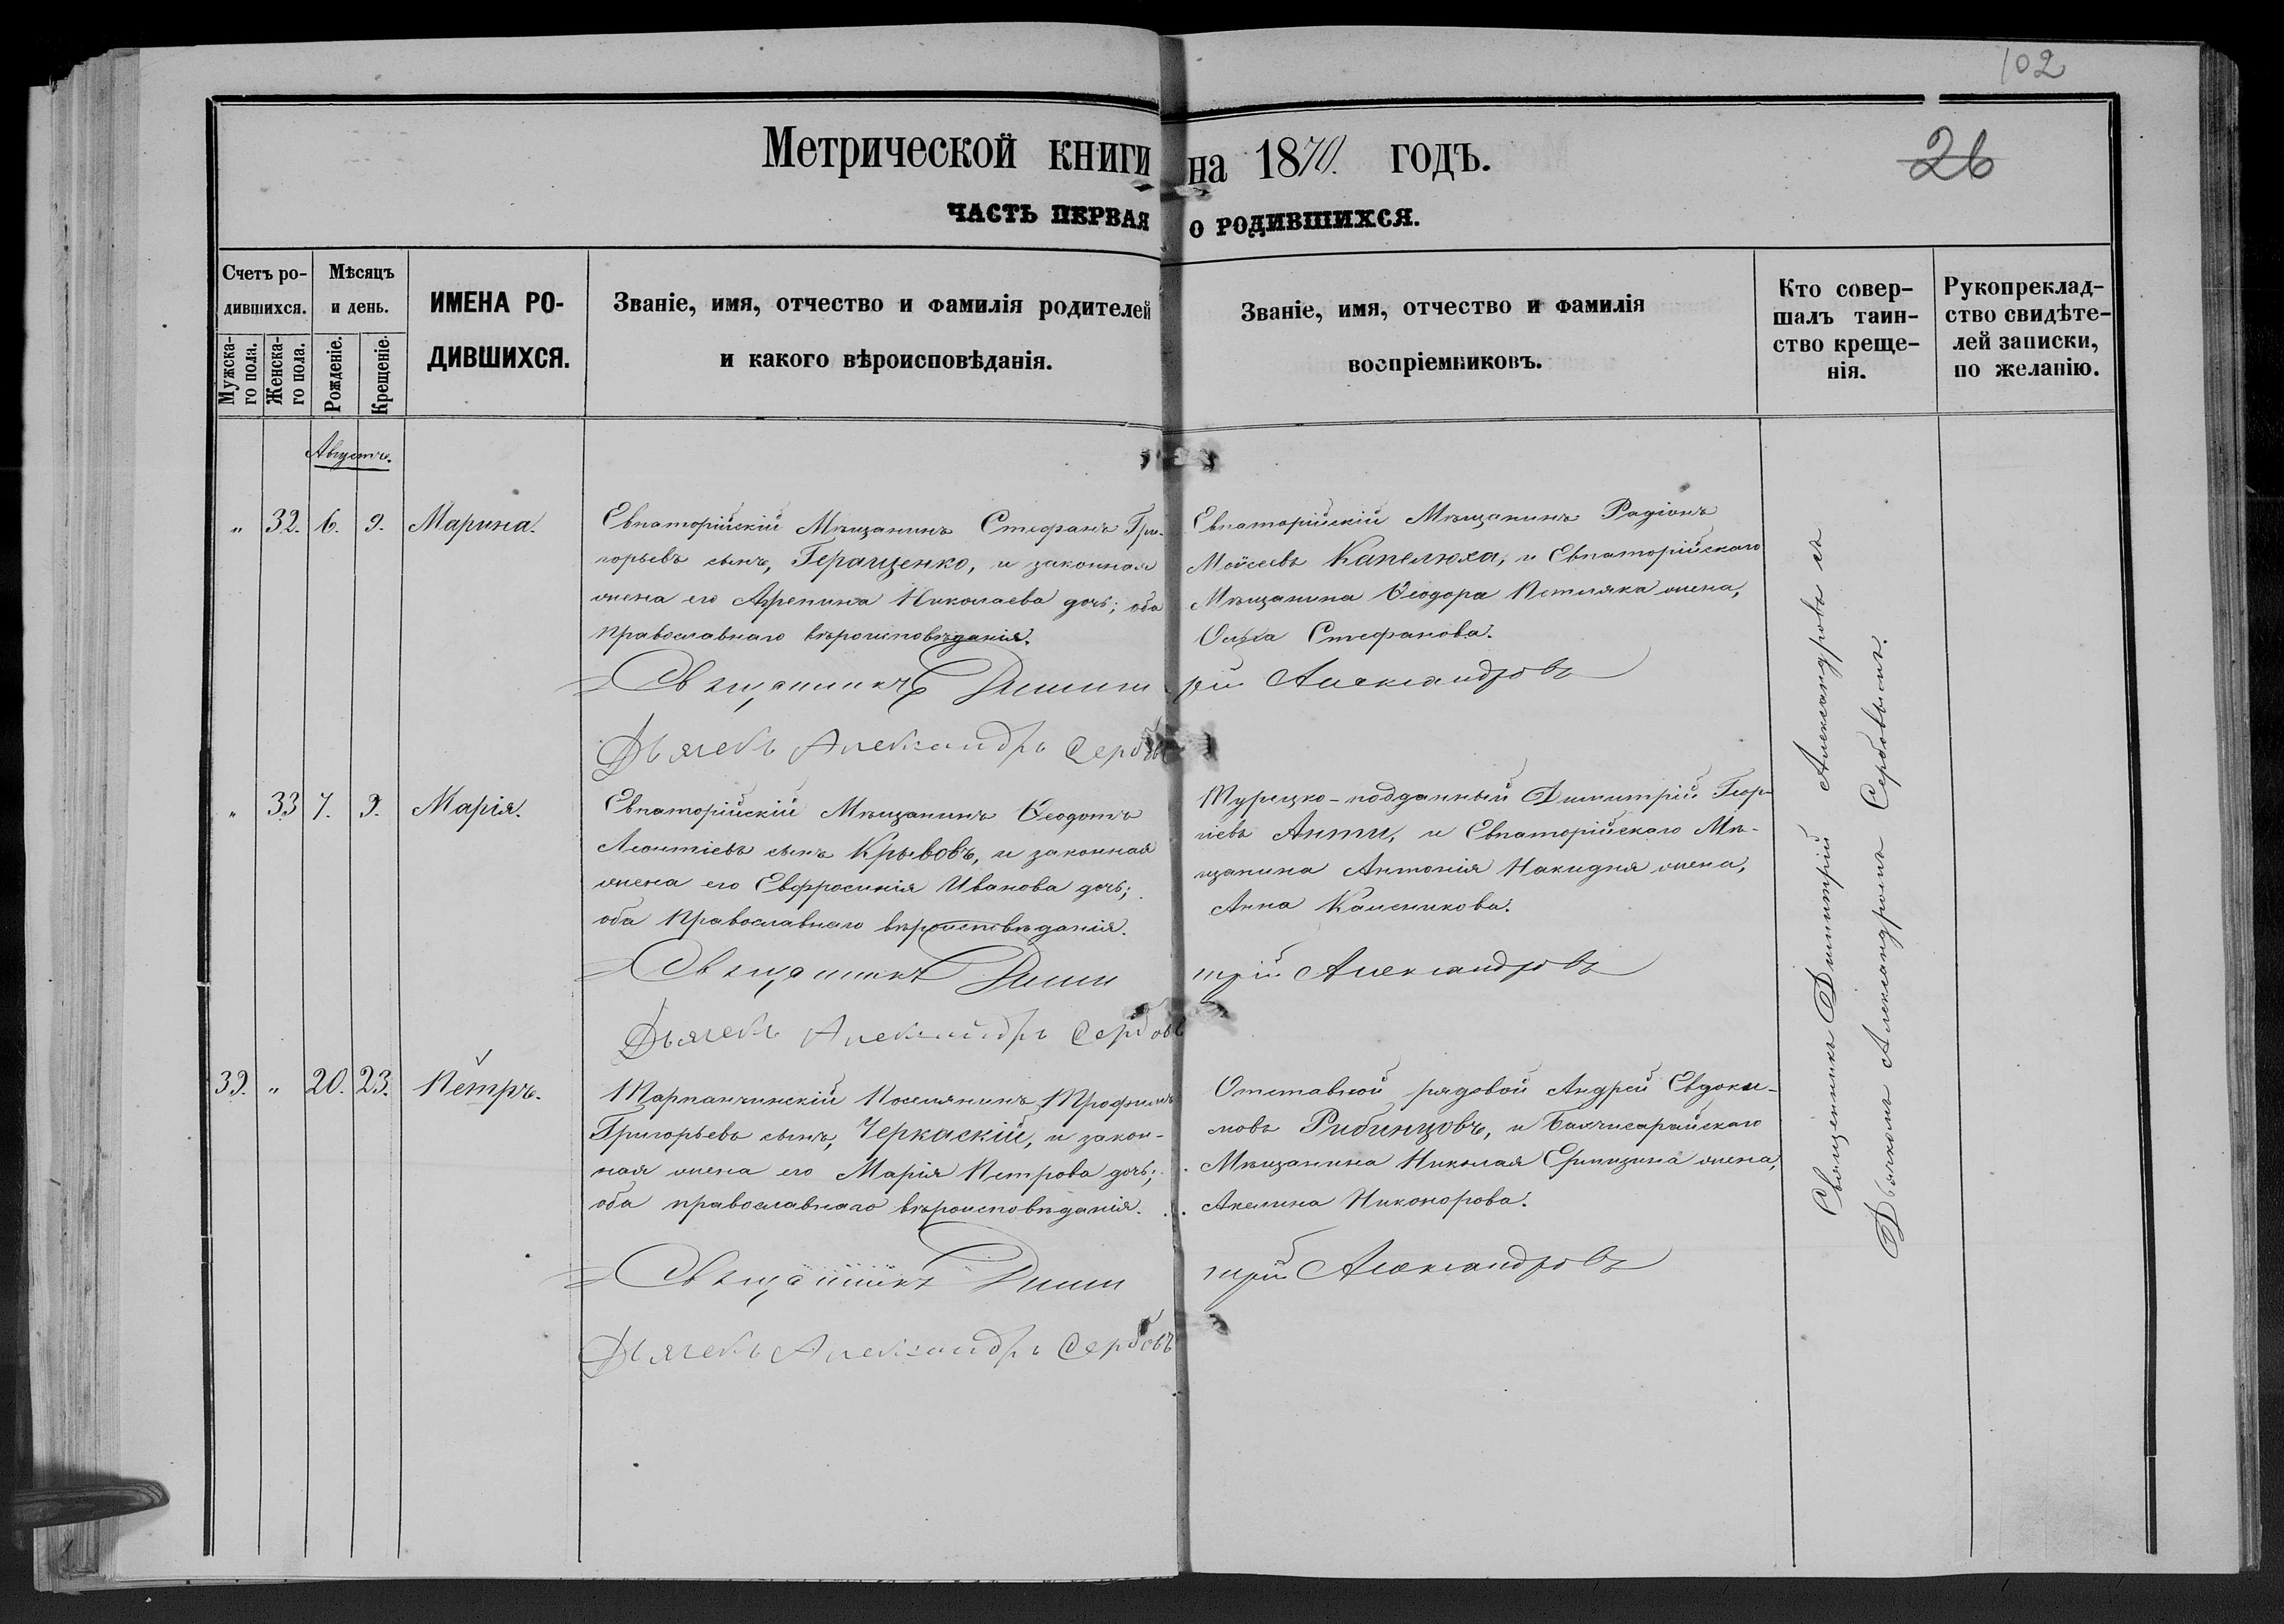 102
Метрической книги на 1870. годъ.
26
ЧАСТЬ ПЕРВАЯ О РОДИВШИХСЯ.
Счетъ ро-
дившихся.
Мужска-
го пола.
Женска-
го пола.
Мѣсяцъ
и день.
Рожденіе.
Крещеніе.
ИМЕНА РО-
ДИВШИХСЯ.
Званіе, имя, отчество и фамилія родителей
и какого вѣроисповѣданія.
Званіе, имя, отчество и фамилія
воспріемниковъ.
Кто совер-
шалъ таин-
ство креще-
нія.
Рукопреклад-
ство свидѣте-
лей записки,
по желанію.
Августъ.
" 32. 6. 9. Марина.
Евпаторійскій Мѣщанинъ Стефанъ Гри-
горьевъ сынъ, Геращенко, и законная
жена его Агрепина Николаева дочь; оба
православнаго вѣроисповѣданія.
Евпаторійскій Мѣщанинъ Радіонъ
Моѵсеевъ Капелюха, и Евпаторійскаго
Мѣщанина Ѳеодора Петляка жена,
Ольга Стефанова.
Священникъ Димитрій Александровъ
Дьячекъ Александръ Сербовъ
" 33 7. 9. Марія.
Евпаторійскій Мѣщанинъ Ѳеодотъ
Леонтіевъ сынъ Крывовъ, и законная
жена его Евфросинія Иванова дочь;
оба православнаго вѣроисповѣданія.
Турецко-подданный Димитрій Геор-
гіевъ Анти, и Евпаторійскаго Мѣ-
щанина Антонія Накидня жена,
Анна Каленикова.
Священникъ Димитрій Александровъ
Дьячекъ Александръ Сербовъ
39. " 20. 23. Петръ.
Тарпанчинскій Поселянинъ Трофимъ
Григорьевъ сынъ, Черкаскій, и закон-
ная жена его Марія Петрова дочь;
оба православнаго вѣроисповѣданія.
Отставной рядовой Андрей Евдоки-
мовъ Рибинцовъ, и Бахчисарайскаго
Мѣщанина Николая жена,
Акелина Никонорова.
Священникъ Димитрій Александровъ
Дьячекъ Александръ Сербовъ
Священникъ Димитрій Александровъ съ
Дьячкомъ Александромъ Сербовымъ.